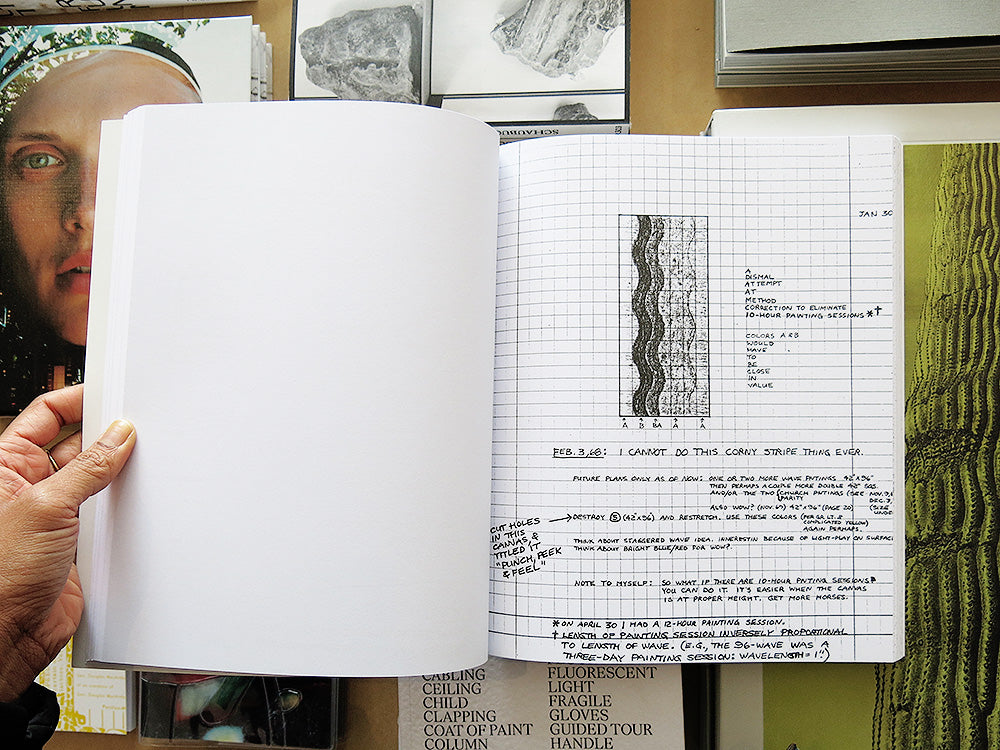 SCHAUBÜCH
JAN 30
A
DISMAL
ATTEMPT
AT
METHOD
CORRECTION TO ELIMINATE
10-HOUR PAINTING SESSIONS *†
COLORS A & B
WOULD
HAVE
TO
BE
CLOSE
IN
VALUE
A B BA A A
FEB. 3, 68: I CANNOT DO THIS CORNY STRIPE THING EVER.
FUTURE PLANS ONLY AS OF NOW: ONE OR TWO MORE WAVE PNTINGS 42"X96"
THEN PERHAPS A COUPLE MORE DOUBLE 42" SQS.
AND/OR THE TWO (CHURCH PNTINGS (SEE NOV. 9,
PARITY DEC. 7,
ALSO WOW? (NOV. 67) 42"X96" (PAGE 20) (SIZE
UNDE
CUT HOLES
IN THIS
CANVAS, &
TITLED IT
"PUNCH, PEEK
& FEEL"
DESTROY 5 (42"X96) AND RESTRETCH. USE THESE COLORS (PER GR. LT. &
COMPLICATED YELLOW)
AGAIN PERHAPS.
THINK ABOUT STAGGERED WAVE IDEA. INNERESTIN BECAUSE OF LIGHT-PLAY ON SURFAC
THINK ABOUT BRIGHT BLUE/RED FOR WOW?.
NOTE TO MYSELF: SO WHAT IF THERE ARE 10-HOUR PNTING SESSIONS?
YOU CAN DO IT. IT'S EASIER WHEN THE CANVAS
IS AT PROPER HEIGHT. GET MORE HORSES.
* ON APRIL 30 I HAD A 12-HOUR PAINTING SESSION.
† LENGTH OF PAINTING SESSION INVERSELY PROPORTIONAL
TO LENGTH OF WAVE. (E.G., THE 96-WAVE WAS A
THREE-DAY PAINTING SESSION: WAVELENGTH = 1")
CABLING
CEILING
CHILD
CLAPPING
COAT OF PAINT
COLUMN
FLUORESCENT
LIGHT
FRAGILE
GLOVES
GUIDED TOUR
HANDLE